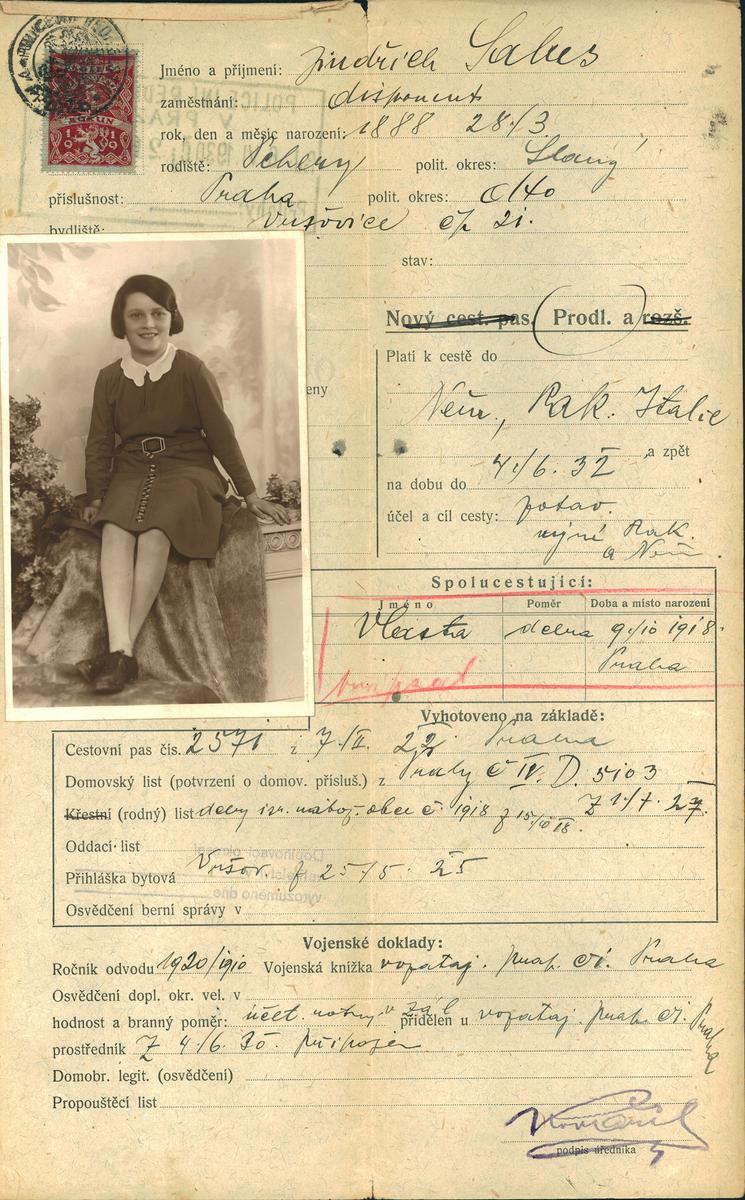 Jméno a přijmení: Jindřich Salus
zaměstnání: disponent
rok, den a měsíc narození: 1888 28./3
rodiště: polit. okres: Slaný
příslušnost: Praha polit. okres:
bydliště: Vršovice čp 21.
stav:
Nový cest. pas. Prodl. a rozš.
Platí k cestě do
Něm., Rak. Italie
a zpět
na dobu do 4./6. 32
účel a cíl cesty:
Rak.
a Něm
Spolucestující:
Jméno Poměr Doba a místo narození
Vlasta dcera 9./10 1918.
Praha
Vyhotoveno na základě:
Cestovní pas čís. 2571 Praha
Domovský list (potvrzení o domov. přísluš.) z Prahy č IV. D. 5103
Křestní (rodný) list dcery isr. nábož. obce č. 1918
Oddací list
Přihláška bytová Vršov. 25/5. 25
Osvědčení berní správy v
Vojenské doklady:
Ročník odvodu 1920/1910 Vojenská knížka vozataj. prap. Praha
Osvědčení dopl. okr. vel. v
hodnost a branný poměr: účet. v zál přidělen u vozataj. prap. Praha
prostředník
Domobr. legit. (osvědčení)
Propouštěcí list
podpis úředníka